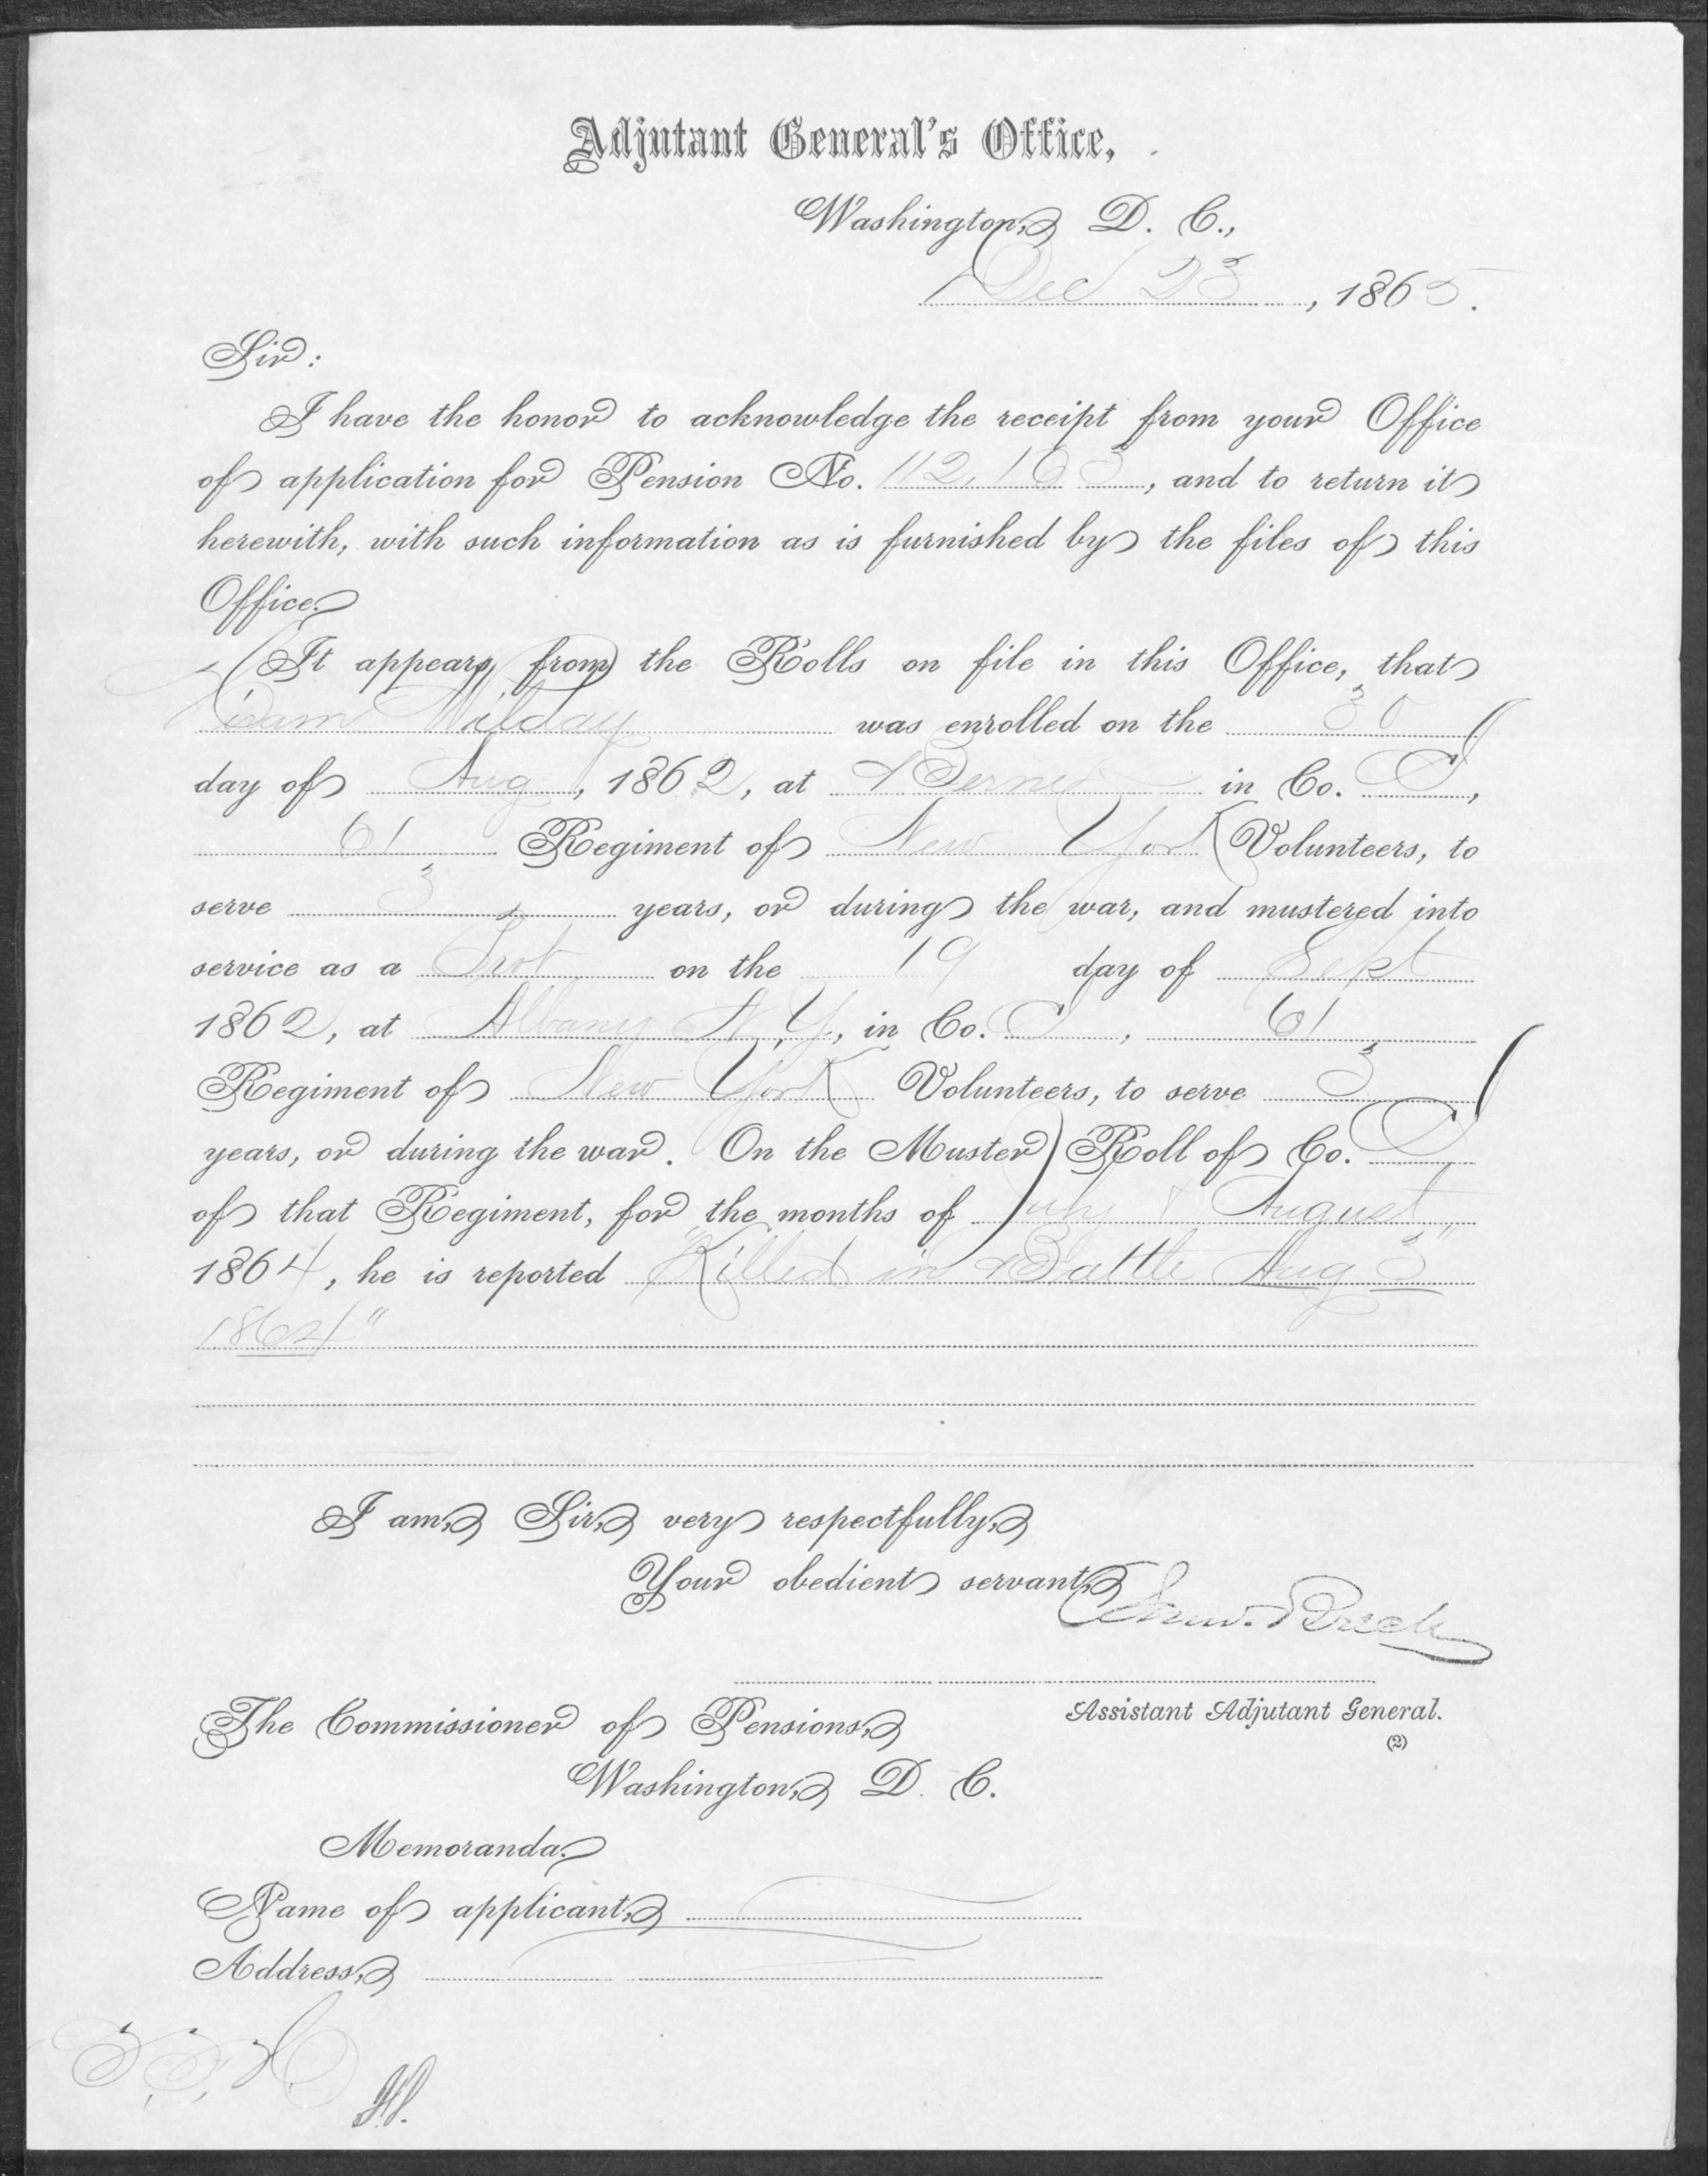 Adjutant General's Office,
Washington, D. C.,
Dec 23, 1865.
Sir:
I have the honor to acknowledge the receipt from your Office
of application for Pension No. 112,163, and to return it
herewith, with such information as is furnished by the files of this
Office.
It appears from the Rolls on file in this Office, that
Adam Wilday was enrolled on the 30
day of Aug, 1862, at Berne in Co. I,
61 Regiment of New York Volunteers, to
serve 3 years, or during the war, and mustered into
service as a Pvt on the 19 day of Sept
1862, at Albany N.Y, in Co. I, 61
Regiment of New York Volunteers, to serve 3
years, or during the war. On the Muster Roll of Co. I
of that Regiment, for the months of July & August
1864, he is reported "Killed in Battle Aug 3"
1864"
I am, Sir, very respectfully,
Your obedient servant,
Saml. Breck
Assistant Adjutant General.
(2)
The Commissioner of Pensions,
Washington, D. C.
Memoranda.
Name of applicant,
Address,